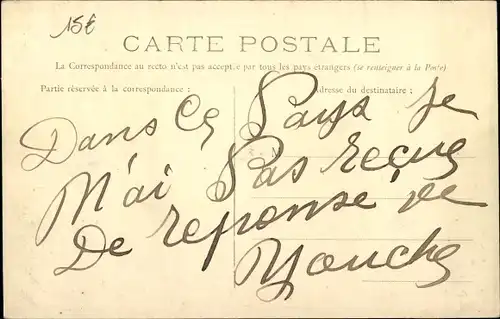 15€
CARTE POSTALE
La Correspondance au recto n'est pas acceptée par tous les pays étrangers (se renseigner à la Poste)
Partie réservée à la correspondance :
Adresse du destinataire :
Dans Ce Pays Je
M'ai Pas reçue
De reponse de